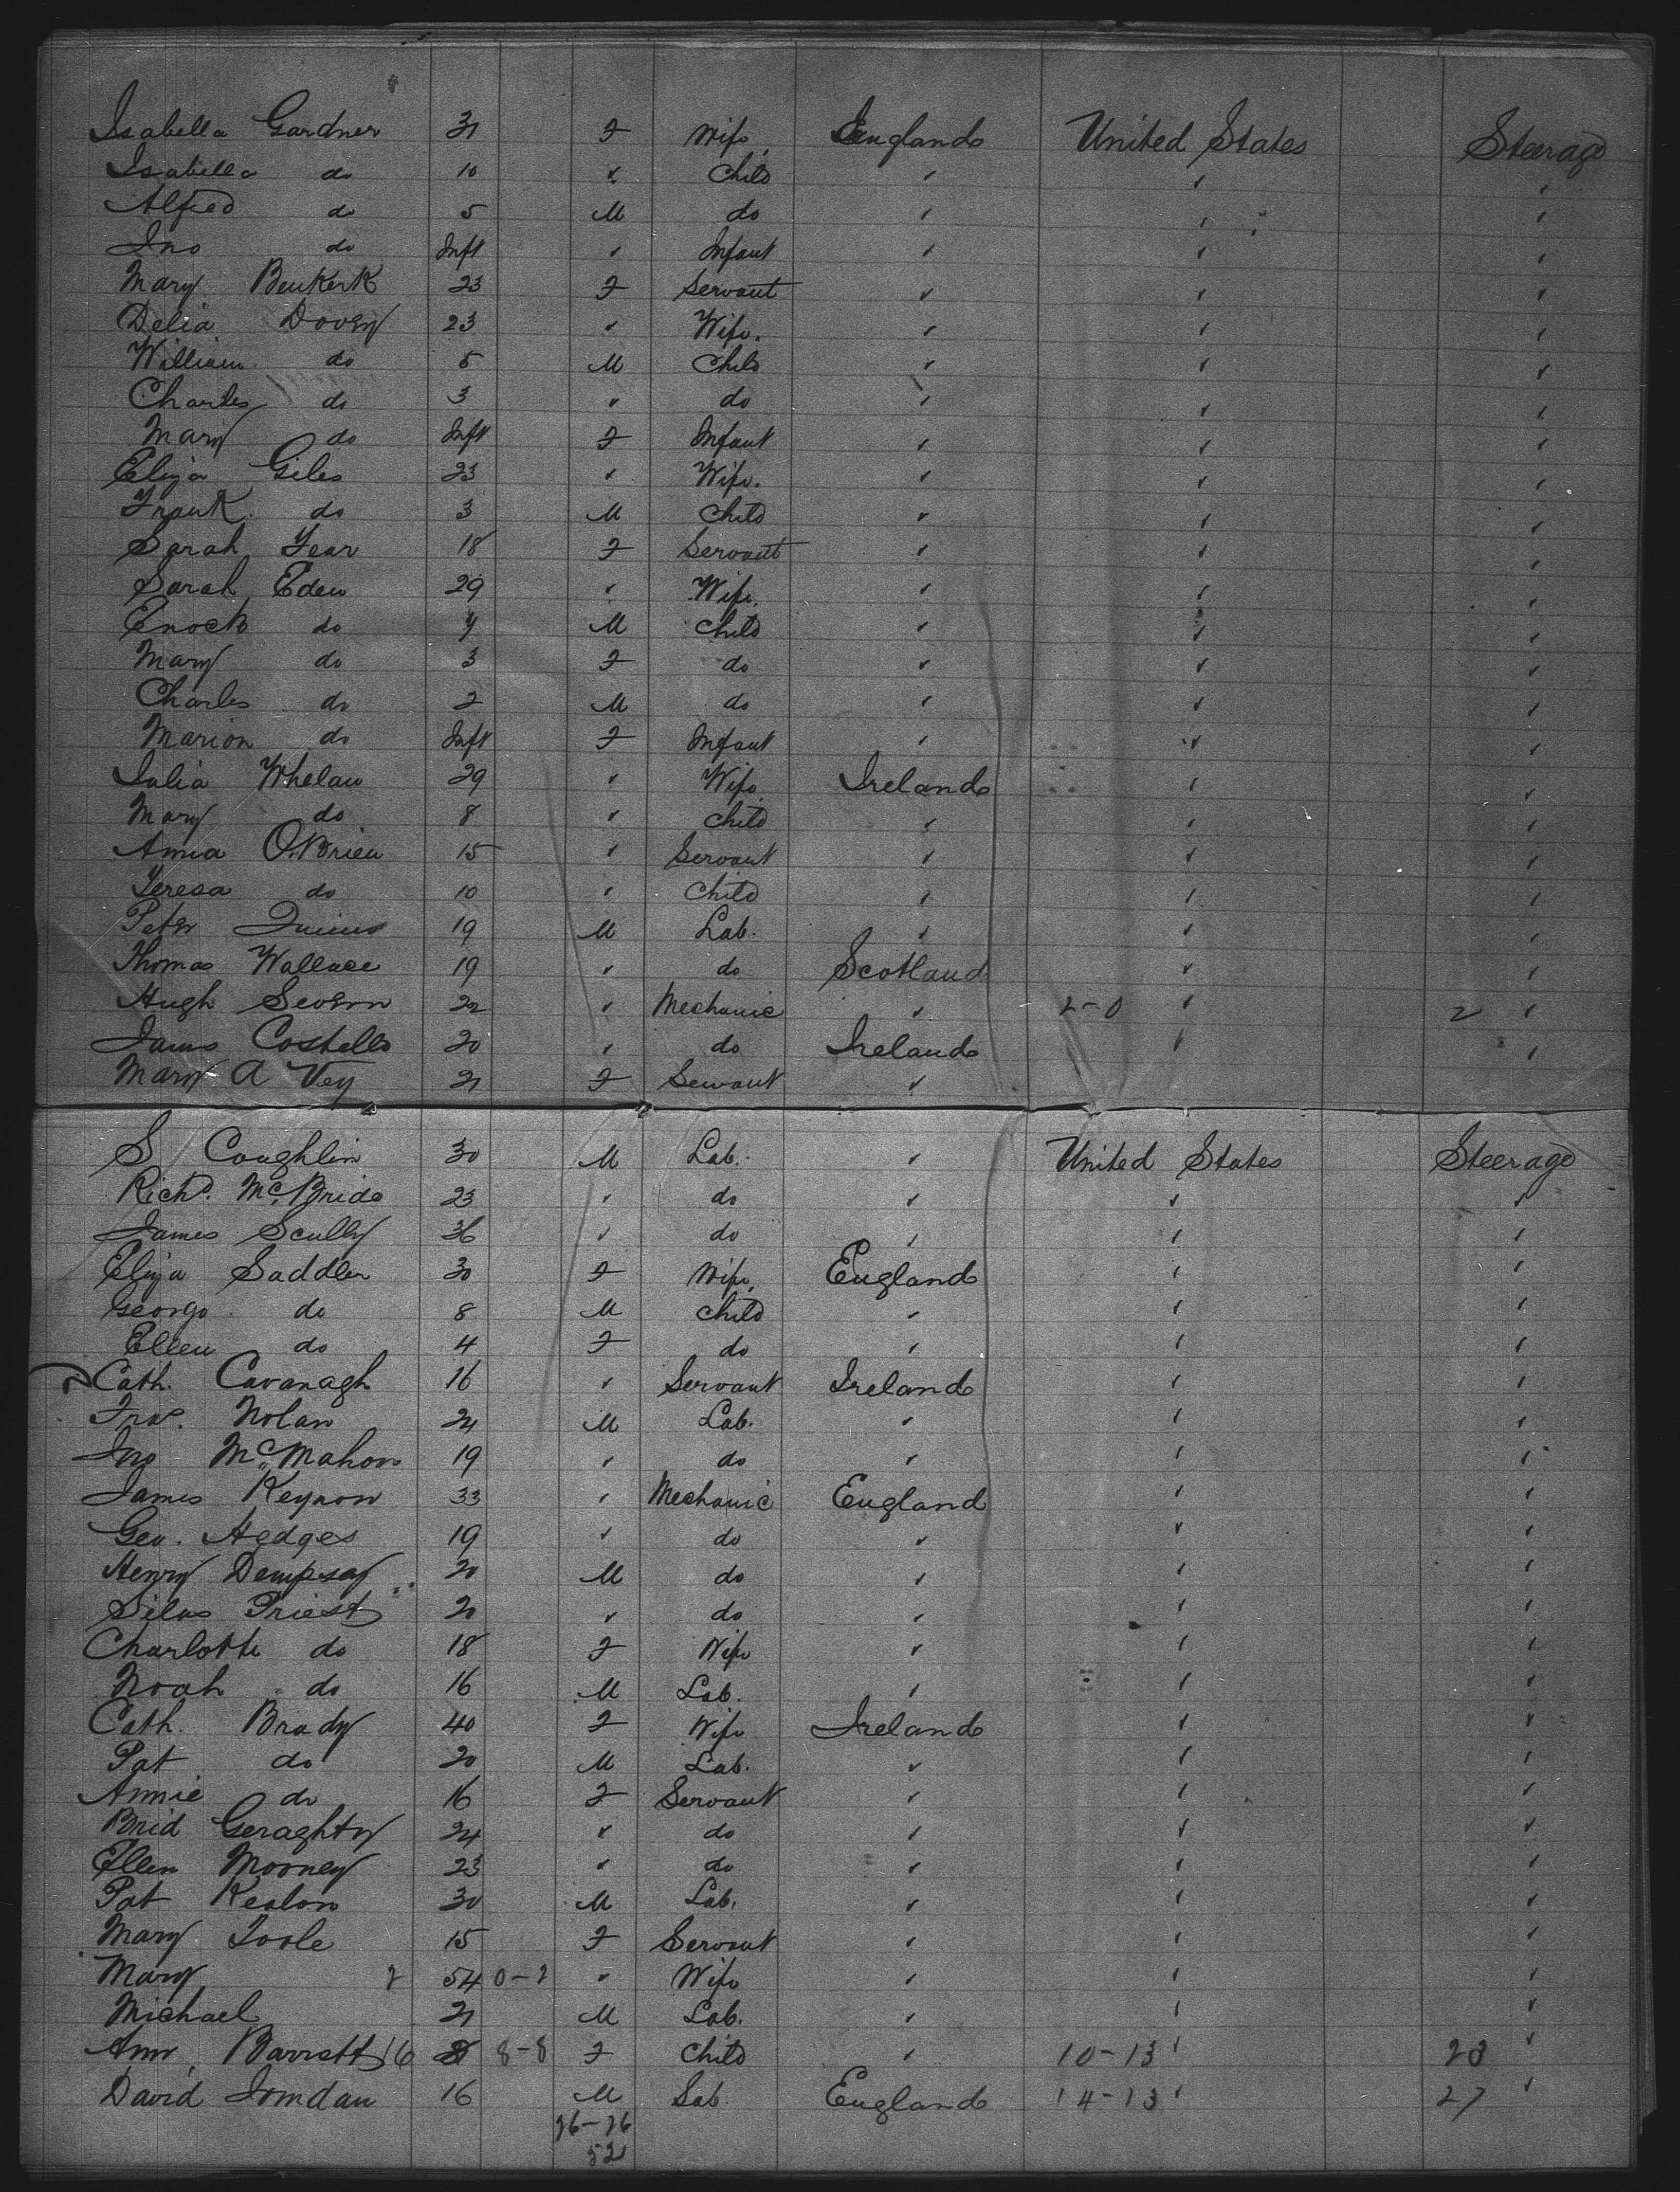 Isabella Gardner 31 F Wife England United States Steerage
Isabella do 10 " Child " " "
Alfred do 5 M do " " "
Jno do Inft " Infant " " "
Mary 23 F Servant " " "
Delia Dovey 23 " Wife. " " "
William do 5 M Child " " "
Charles do 3 " do " " "
Mary do Inft F Infant " " "
Eliza Giles 23 " Wife. " " "
Frank do 3 M Child " " "
Sarah Year 18 F Servant " " "
Sarah Eden 29 " Wife. " " "
Enoch do M Child " " "
Mary do 3 F do " " "
Charles do 2 M do " " "
Marion do Inft F Infant " " "
Julia Whelan 29 " Wife Ireland " "
Mary do 8 " Child " " "
Annia O'Brien 15 " Servant " " "
Teresa do 10 " Child " " "
Peter Quinn 19 M Lab. " " "
Thomas Wallace 19 " do Scotland " "
Hugh Severn 22 " Mechanic " 2-0 " 2 "
James Costello 20 " do Ireland " "
Mary A Vey 21 F Servant "
S Coughlin 30 M Lab. " United States Steerage
Richd. McBride 23 " do " " "
James Scully 36 " do " " "
Eliza Saddler 30 F Wife England " "
George do 8 M Child " " "
Ellen do 4 F do " " "
Cath. Cavanagh 16 " Servant Ireland " "
Fras. Nolan 24 M Lab. " " "
Jno McMahon 19 " do " " "
James Keynon 33 " Mechanic England " "
Geo. Hedges 19 " do " " "
Henry Dempsey 20 M do " " "
Silas Priest 20 " do " " "
Charlotte do 18 F Wife " " "
Noah do 16 M Lab. " " "
Cath. Brady 40 F Wife Ireland " "
Pat do 20 M Lab. " " "
Annie do 16 F Servant " " "
Brid Geraghty 24 " do " " "
Ellen Mooney 23 " do " " "
Pat Kealon 30 M Lab. " " "
Mary Toole 15 F Servant " " "
Mary 2 54 0-2 " Wife " " "
Michael 21 M Lab. " " "
Ann Barrett 16 8 8-8 F Child " 10-13 " 23 "
David 16 M Lab England 14-13 " 27 "
26-26
52